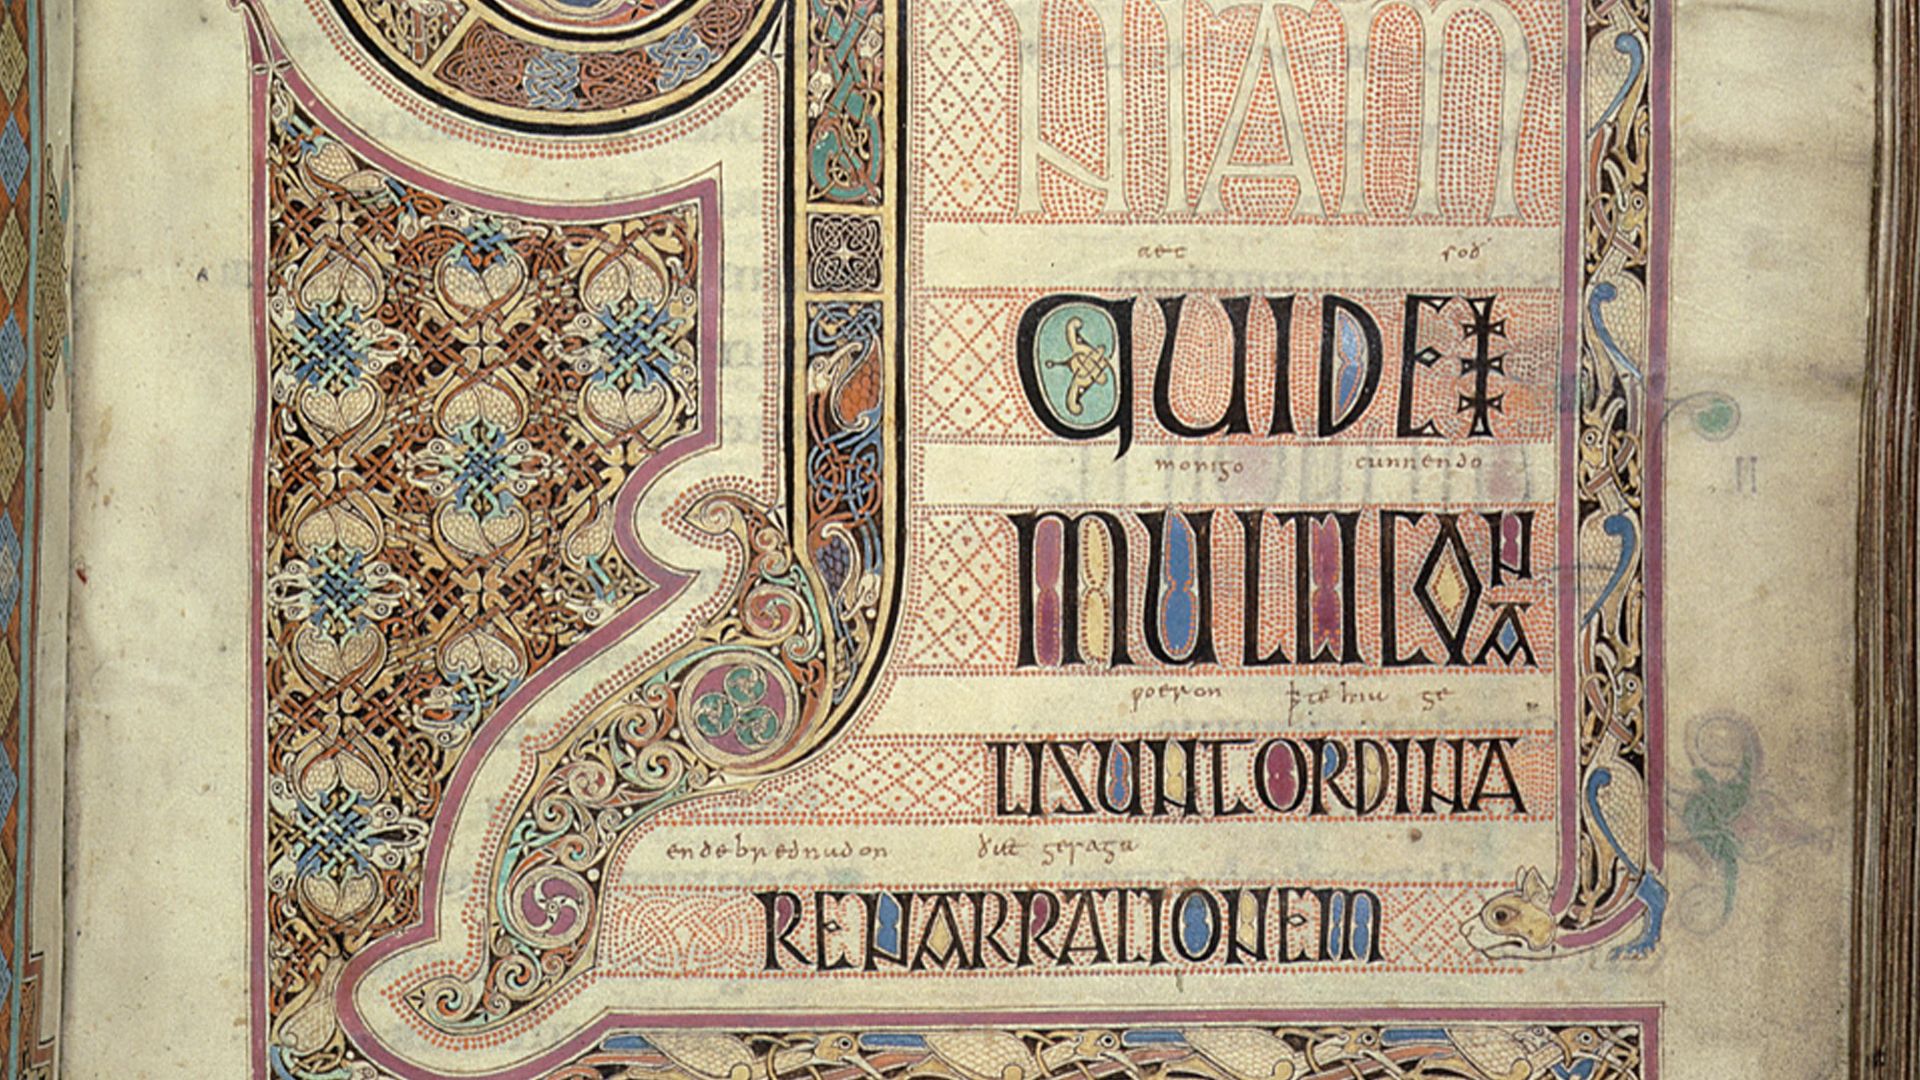 NIAM
aec soð
QUIDEM
monigo cunnendo
MULTICONA
ƿoeron ꝥte hia ge
TISUNTORDINA
endebrednadon ðæt gesaga
RENARRATIONEM